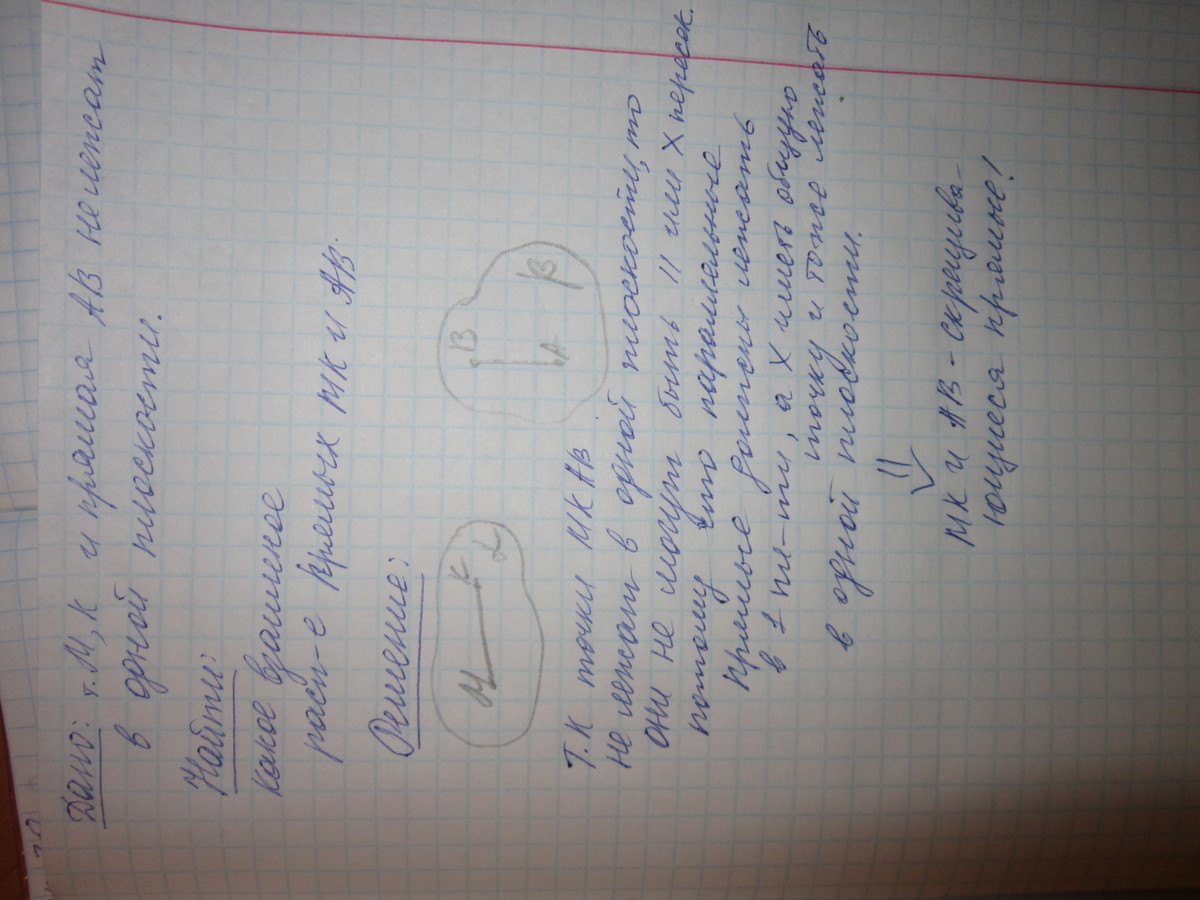 Дано: т. М, К и прямая АВ не лежат
в одной плоскости.
Найти:
какое взаимное
расп-е прямых МК и АВ.
Решение:
М К L
В А β
Т.К точки МК АВ
не лежат в одной плоскости, то
они не могут быть || или X пересек.
потому что параллельные
прямые должны лежать
в 1 пл-ти, а X иметь общую
точку и тоже лежать
в одной плоскости.
⇓
МК и АВ - скрещива-
ющиеся прямые!